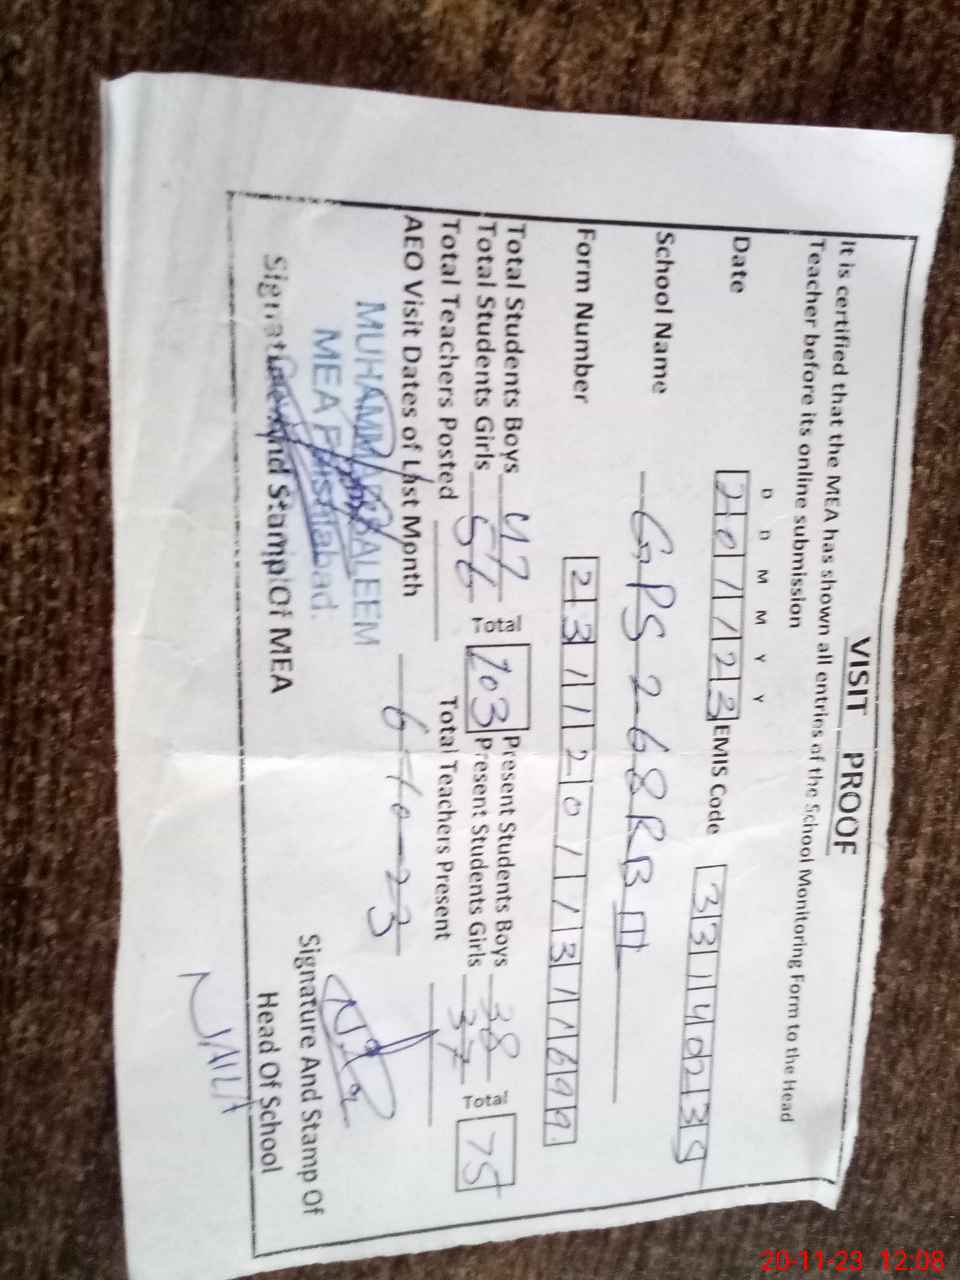 VISIT PROOF
It is certified that the MEA has shown all entries of the School Monitoring Form to the Head
Teacher before its online submission
D D M M Y Y
Date 201123 EMIS Code 33140235
School Name GPS 268 RB III
Form Number 23112011311699
Total Students Boys 47 Total 103 Present Students Boys 38 Total 75
Total Students Girls 56 Present Students Girls 37
Total Teachers Posted Total Teachers Present
AEO Visit Dates of Last Month 6-10-23
MUHAMMAD SALEEM
MEA Faisalabad.
Signature And Stamp Of MEA
Signature And Stamp Of
Head Of School
NAILA
20-11-23 12:08